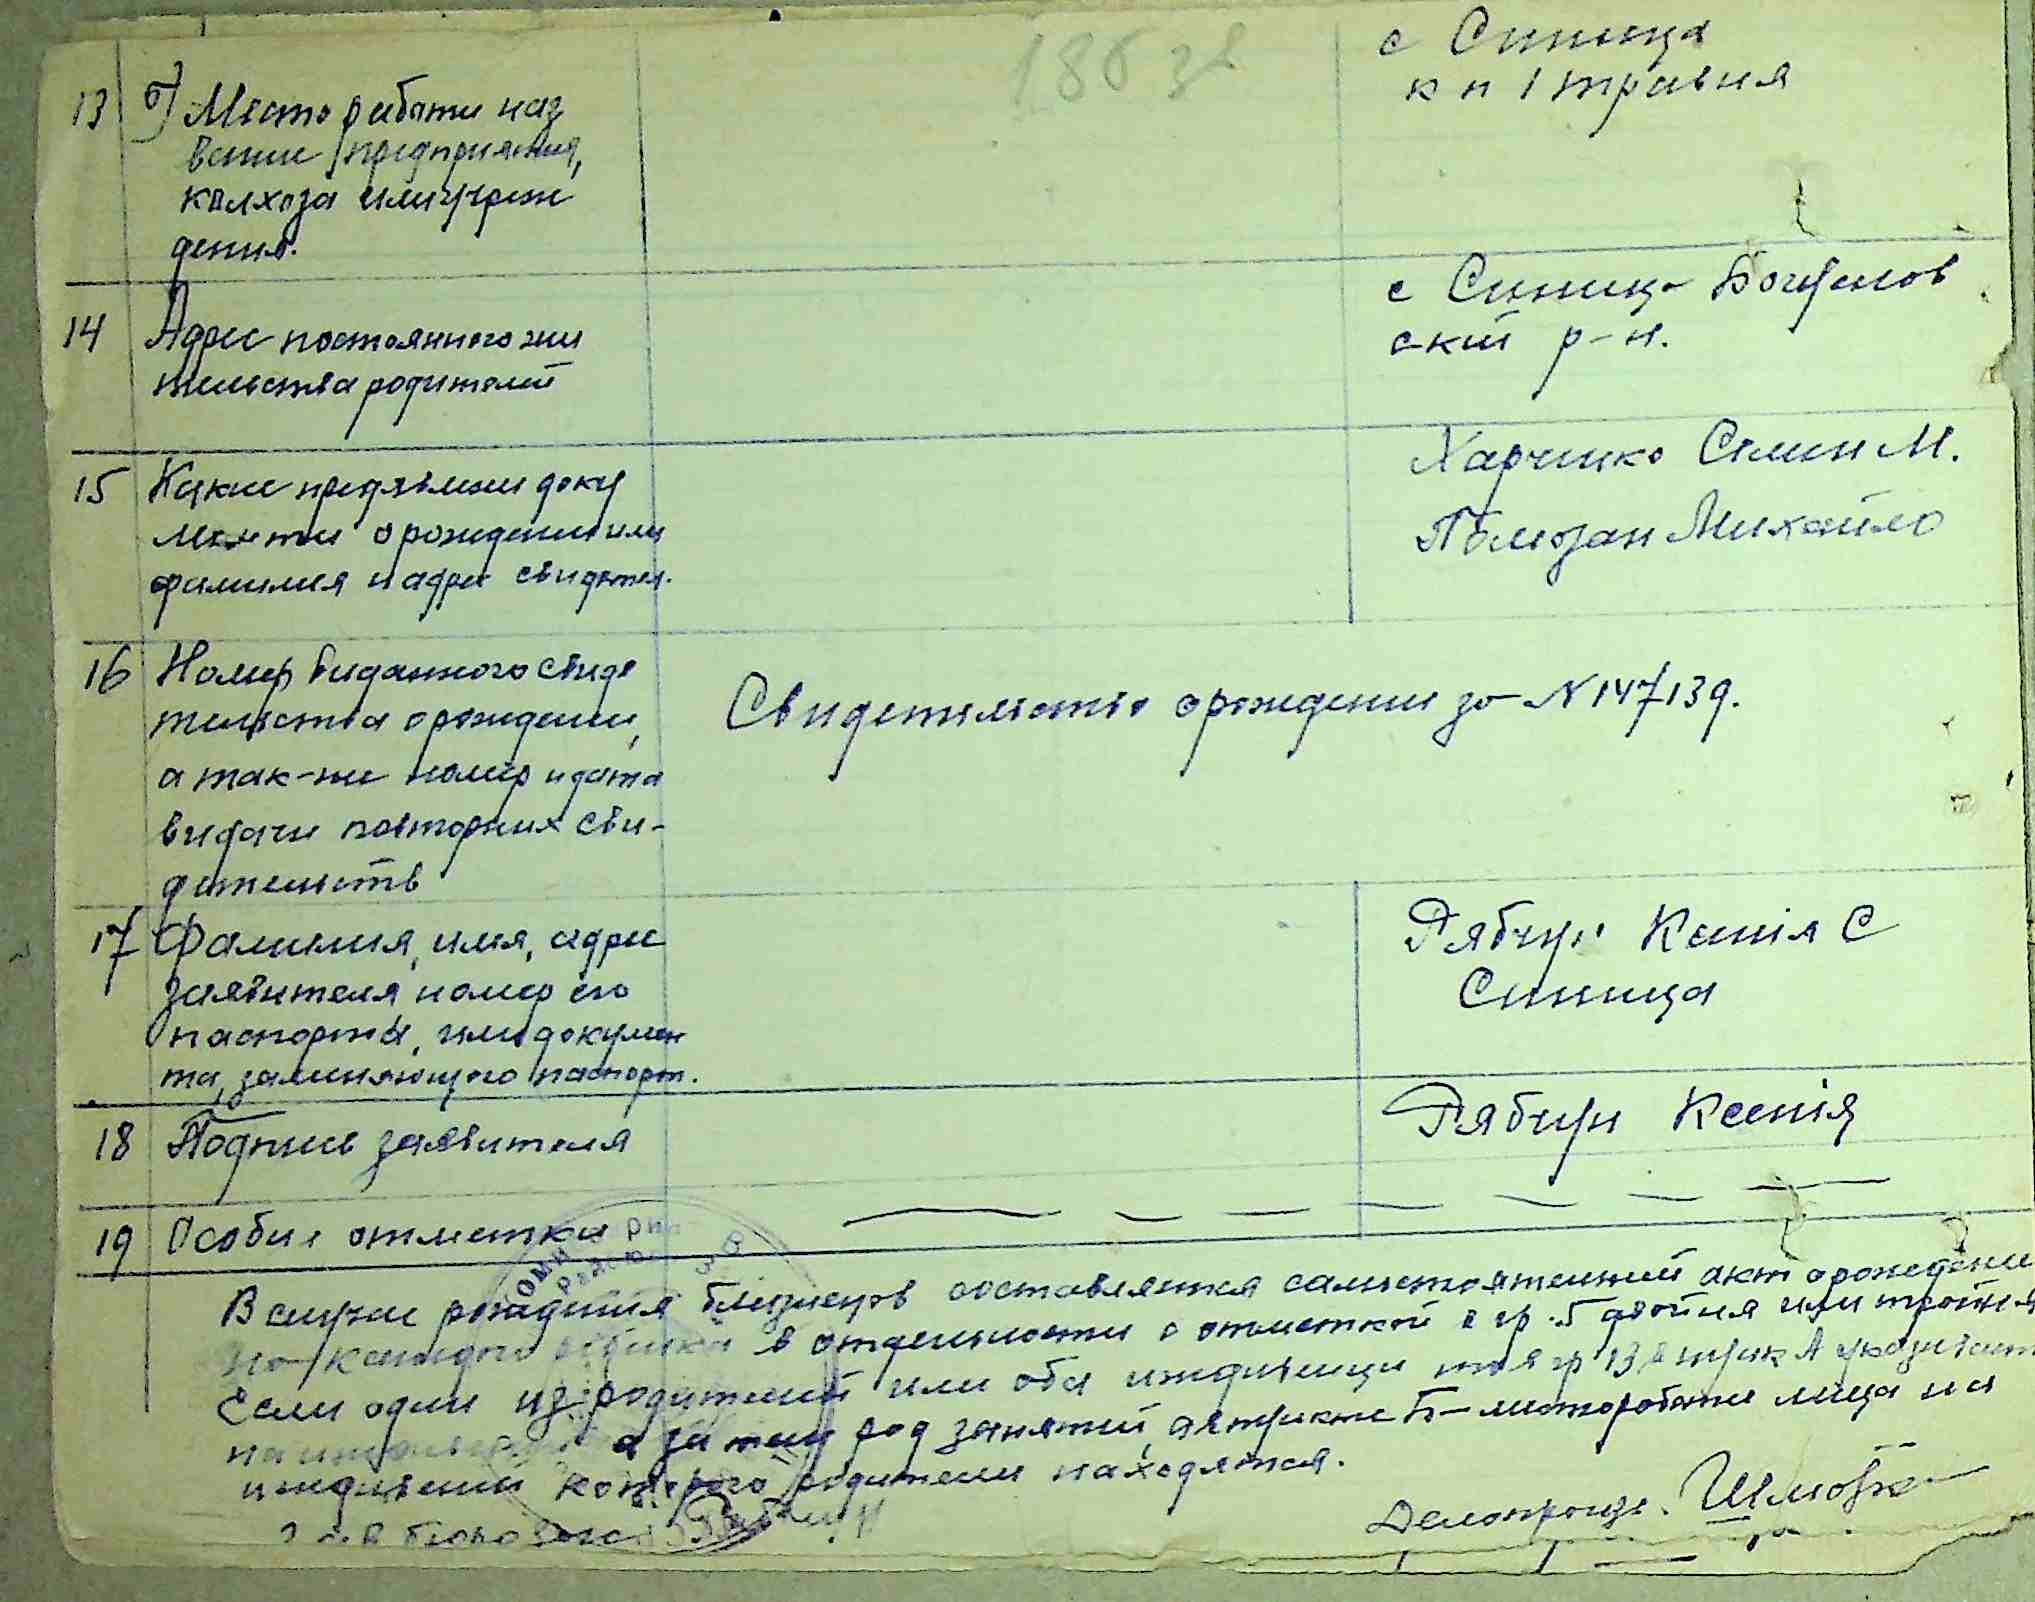 186 зв
с Синица
к п 1 травня
13 б) Место работи наз
вание предприятия,
колхоза или учреж
дения.
14 Адрес постоянного жи
тельства родителей
с Синица Богуслов
ский р-н.
15 Какие предявлени доку
менти о рождении или
фамилия и адрес свидетел.
Харченко Семен М.
Помозан Михайло
16 Номер виданного свиде
тельства о рождении,
а так-же номер и дата
видачи повторних сви-
детельств
Свидетельство о рождении за N 147139.
17 Фамилия, имя, адрес
заявителя номер его
паспорта, или докумен
та, заменяющого паспорт.
Рябчун Ксенія С
Синица
18 Подпись заявителя
Рябчун Ксенія
19 Особие отметки
В случае рождения близнецов составляется самостоятельний акт о рождении
на каждого ребенка в отдельности с отметкой в гр. 5 двойня или тройня
Если один из родителей или оба иждивенци то в гр 13 в пункт А указивает
а затем род занятий, а в пункте Б-место работи лица на
иждивении которого родители находятся.
Зав бюро Загса
Делопроизв.